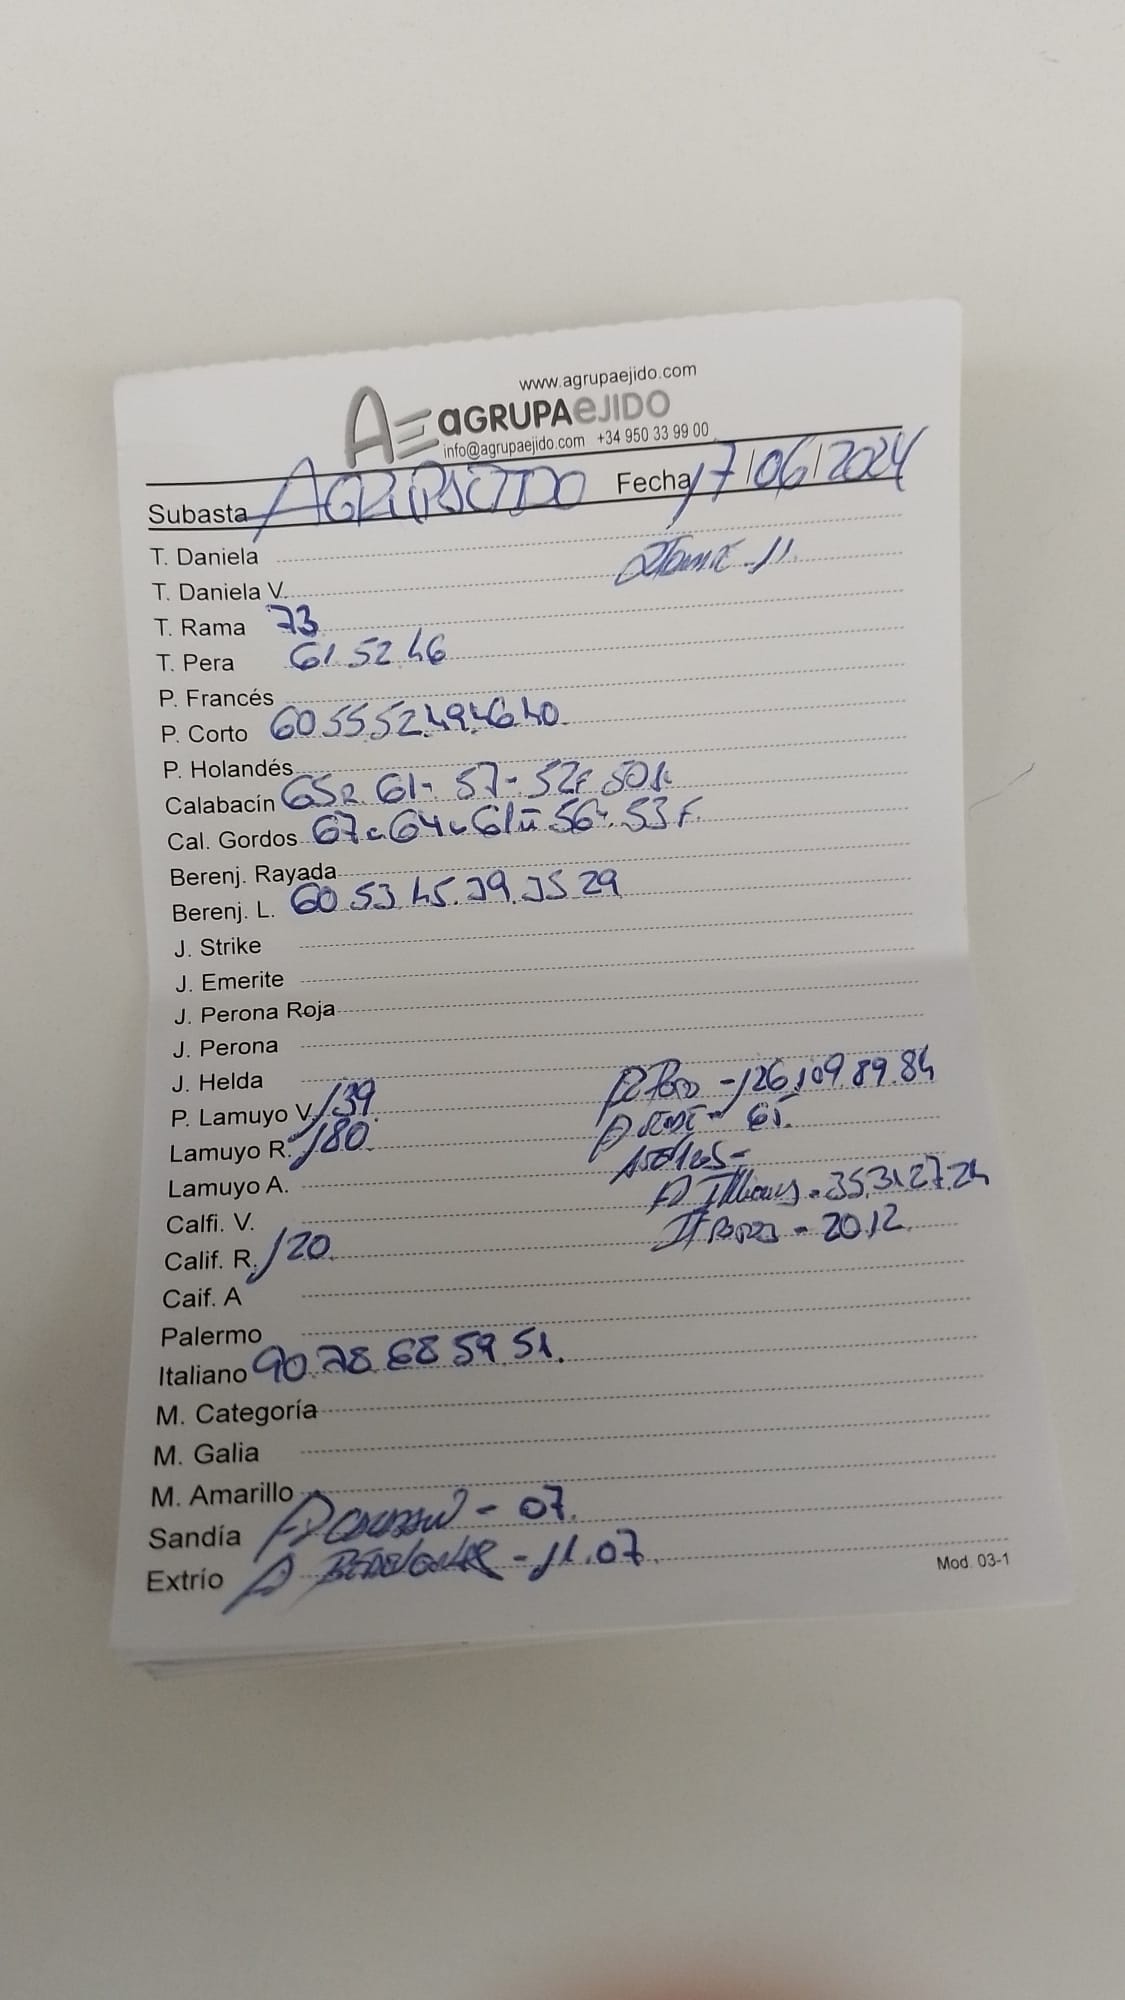 www.agrupaejido.com
AE aGRUPAeJIDO
info@agrupaejido.com +34 950 33 99 00
Subasta AGRUPAEJIDO Fecha 17/06/2024
T. Daniela
T. Daniela V. - 11.
T. Rama 73
T. Pera 61.52.46
P. Francés
P. Corto 60 55 52.49.46.40
P. Holandés
Calabacín 65 61- 57- 52 50
Cal. Gordos 67 64 61 56 53
Berenj. Rayada
Berenj. L. 60.53.45.39.35.29
J. Strike
J. Emerite
J. Perona Roja
J. Perona
J. Helda
P. Lamuyo V. 139. - 126,109.89.84
Lamuyo R. 180. 65.
Lamuyo A.
Calfi. V. - 35.31.27.24
Calif. R. 120. - 20.12.
Caif. A
Palermo
Italiano 90.78.68 59 51.
M. Categoría
M. Galia
M. Amarillo
Sandía - 07.
Extrío - 11.07
Mod. 03-1